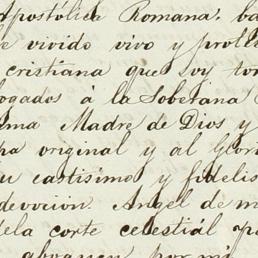 Apostólica Romana, ba
vivido vivo y prote
cristiana que soy tom
ogados á la Soberana
ma Madre de Dios y
ha original y al Glori
su castisimo y fidelis
devocion. Angel de m
dela corte celestiál pa
aboguen por mi